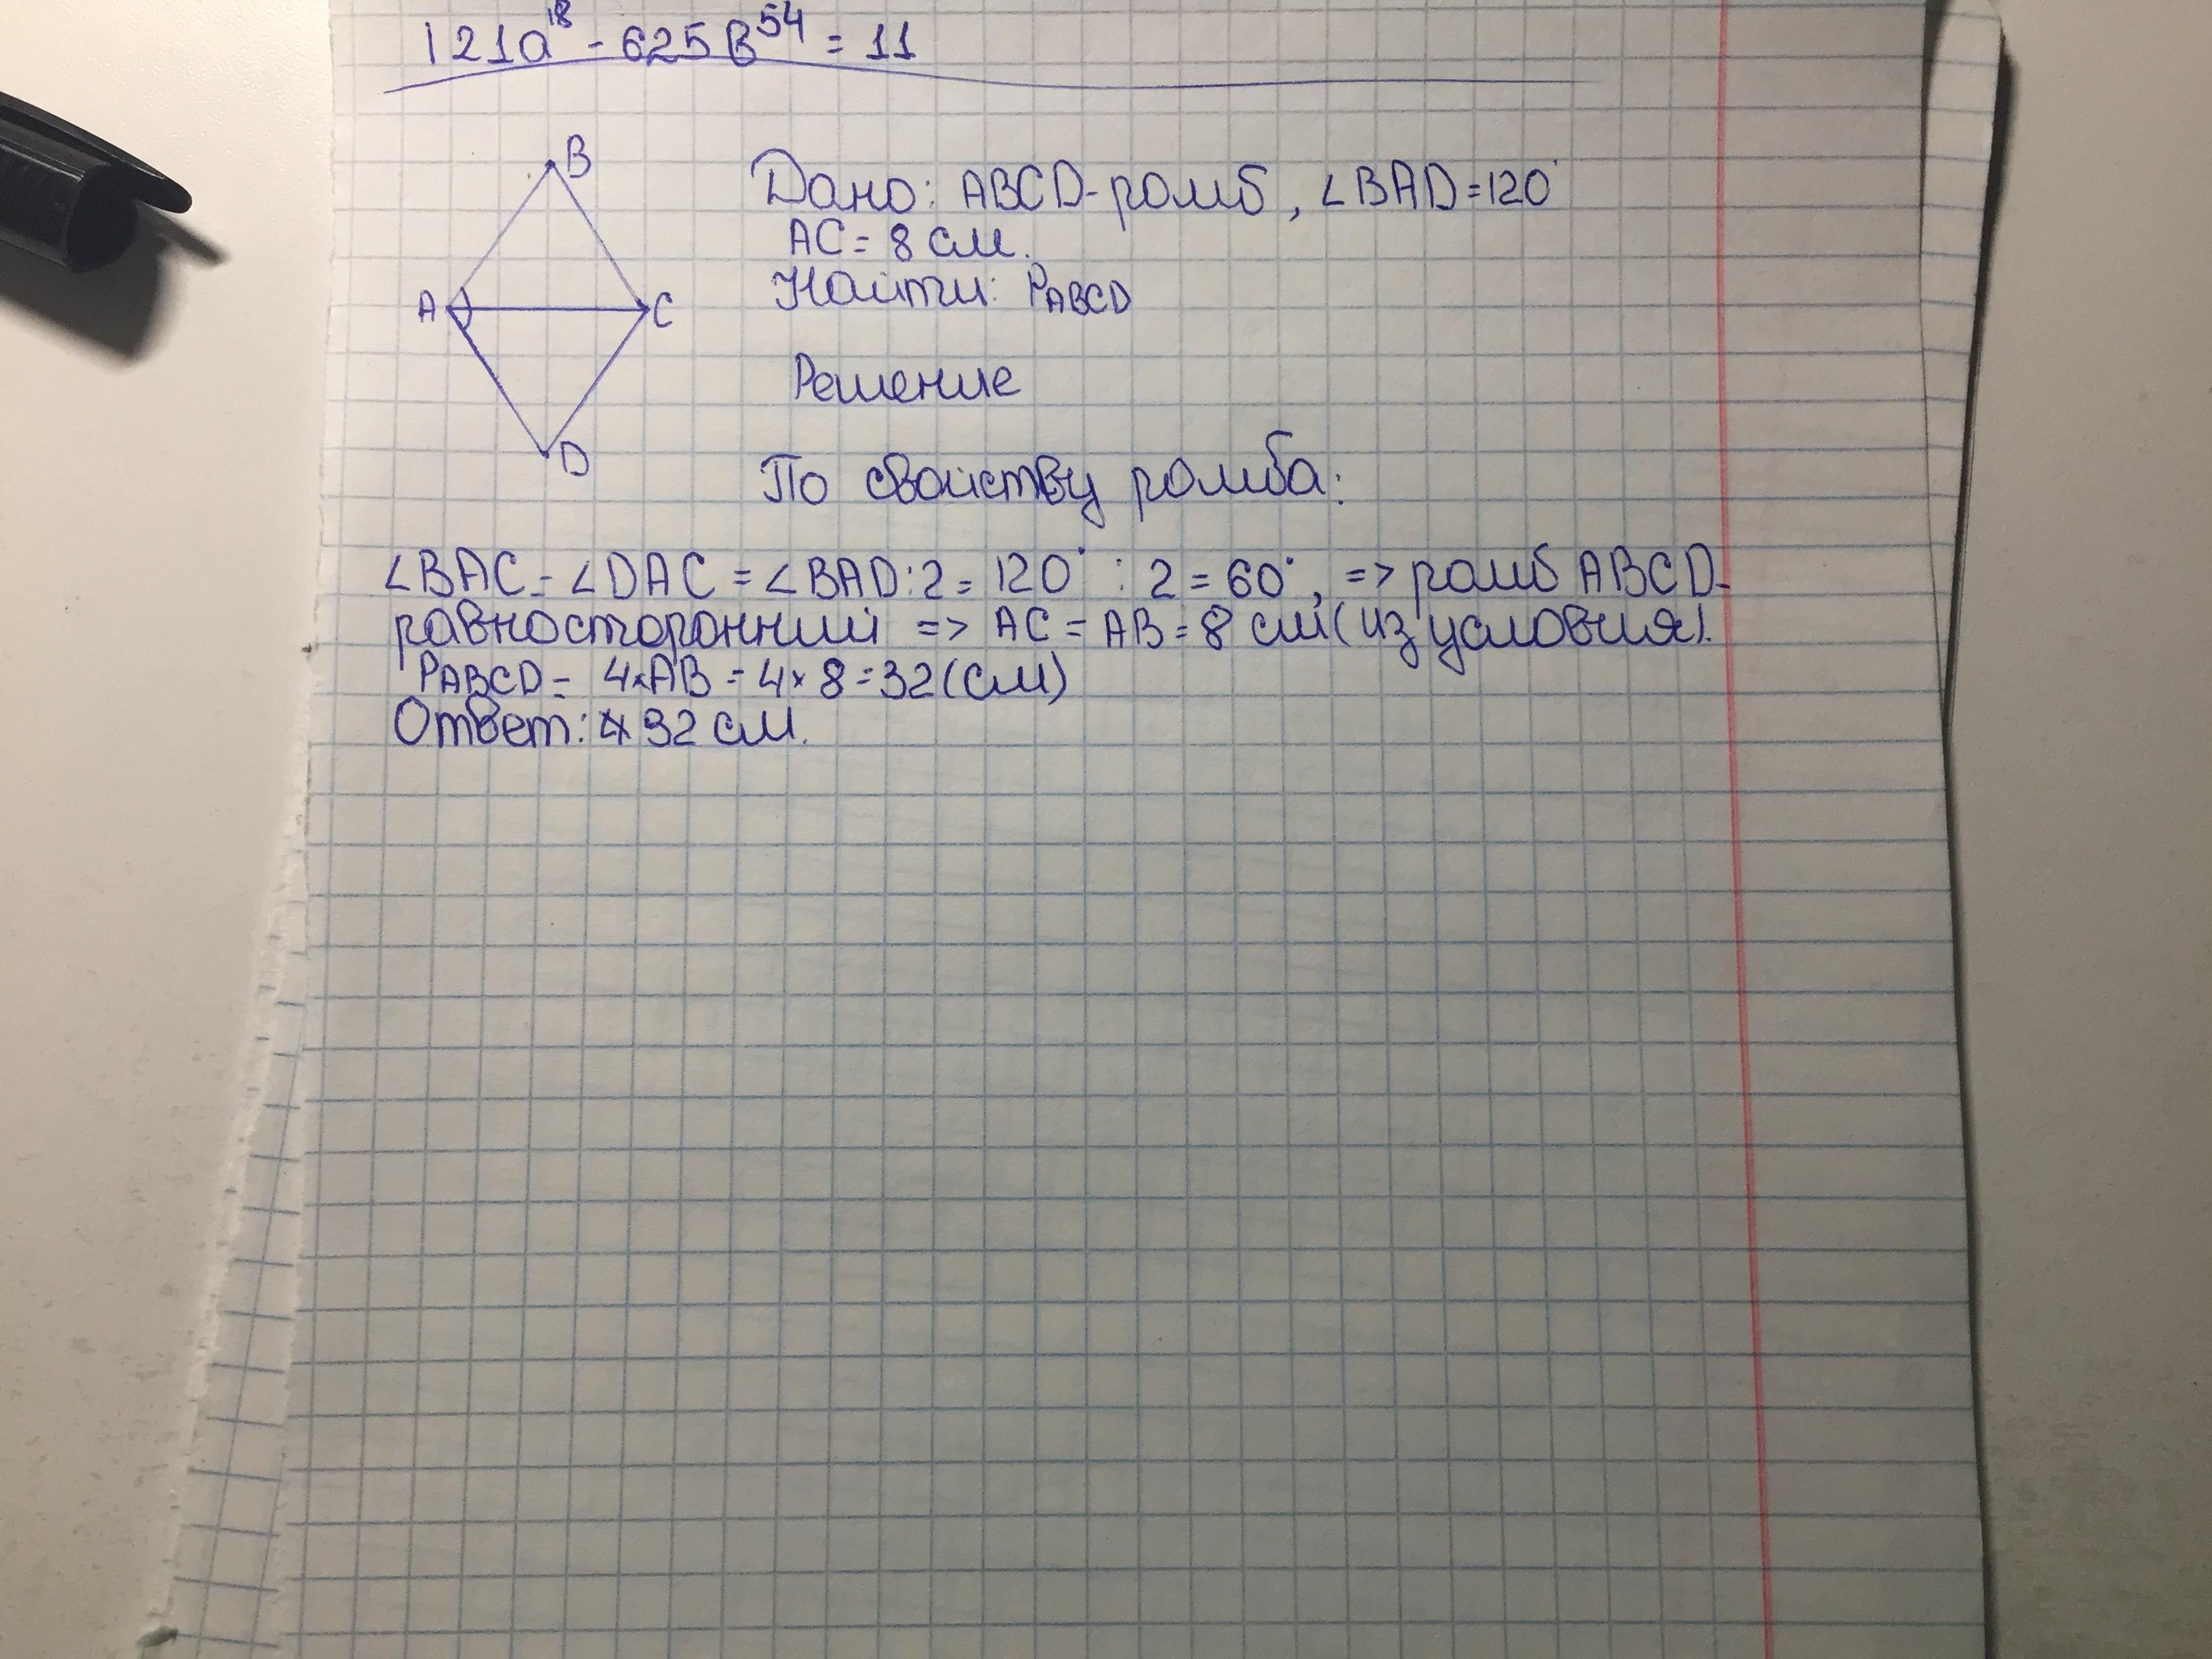 121a¹⁸ - 625b⁵⁴ = 11
B
A
C
D
Дано: ABCD-ромб, ∠BAD=120°
AC = 8 см.
Найти: PABCD
Решение
По свойству ромба:
∠BAC = ∠DAC = ∠BAD:2 = 120° : 2 = 60°, => ромб ABCD-
равносторонний => AC = AB = 8 см (из условия).
PABCD = 4×AB = 4×8=32(см)
Ответ: 32 см.